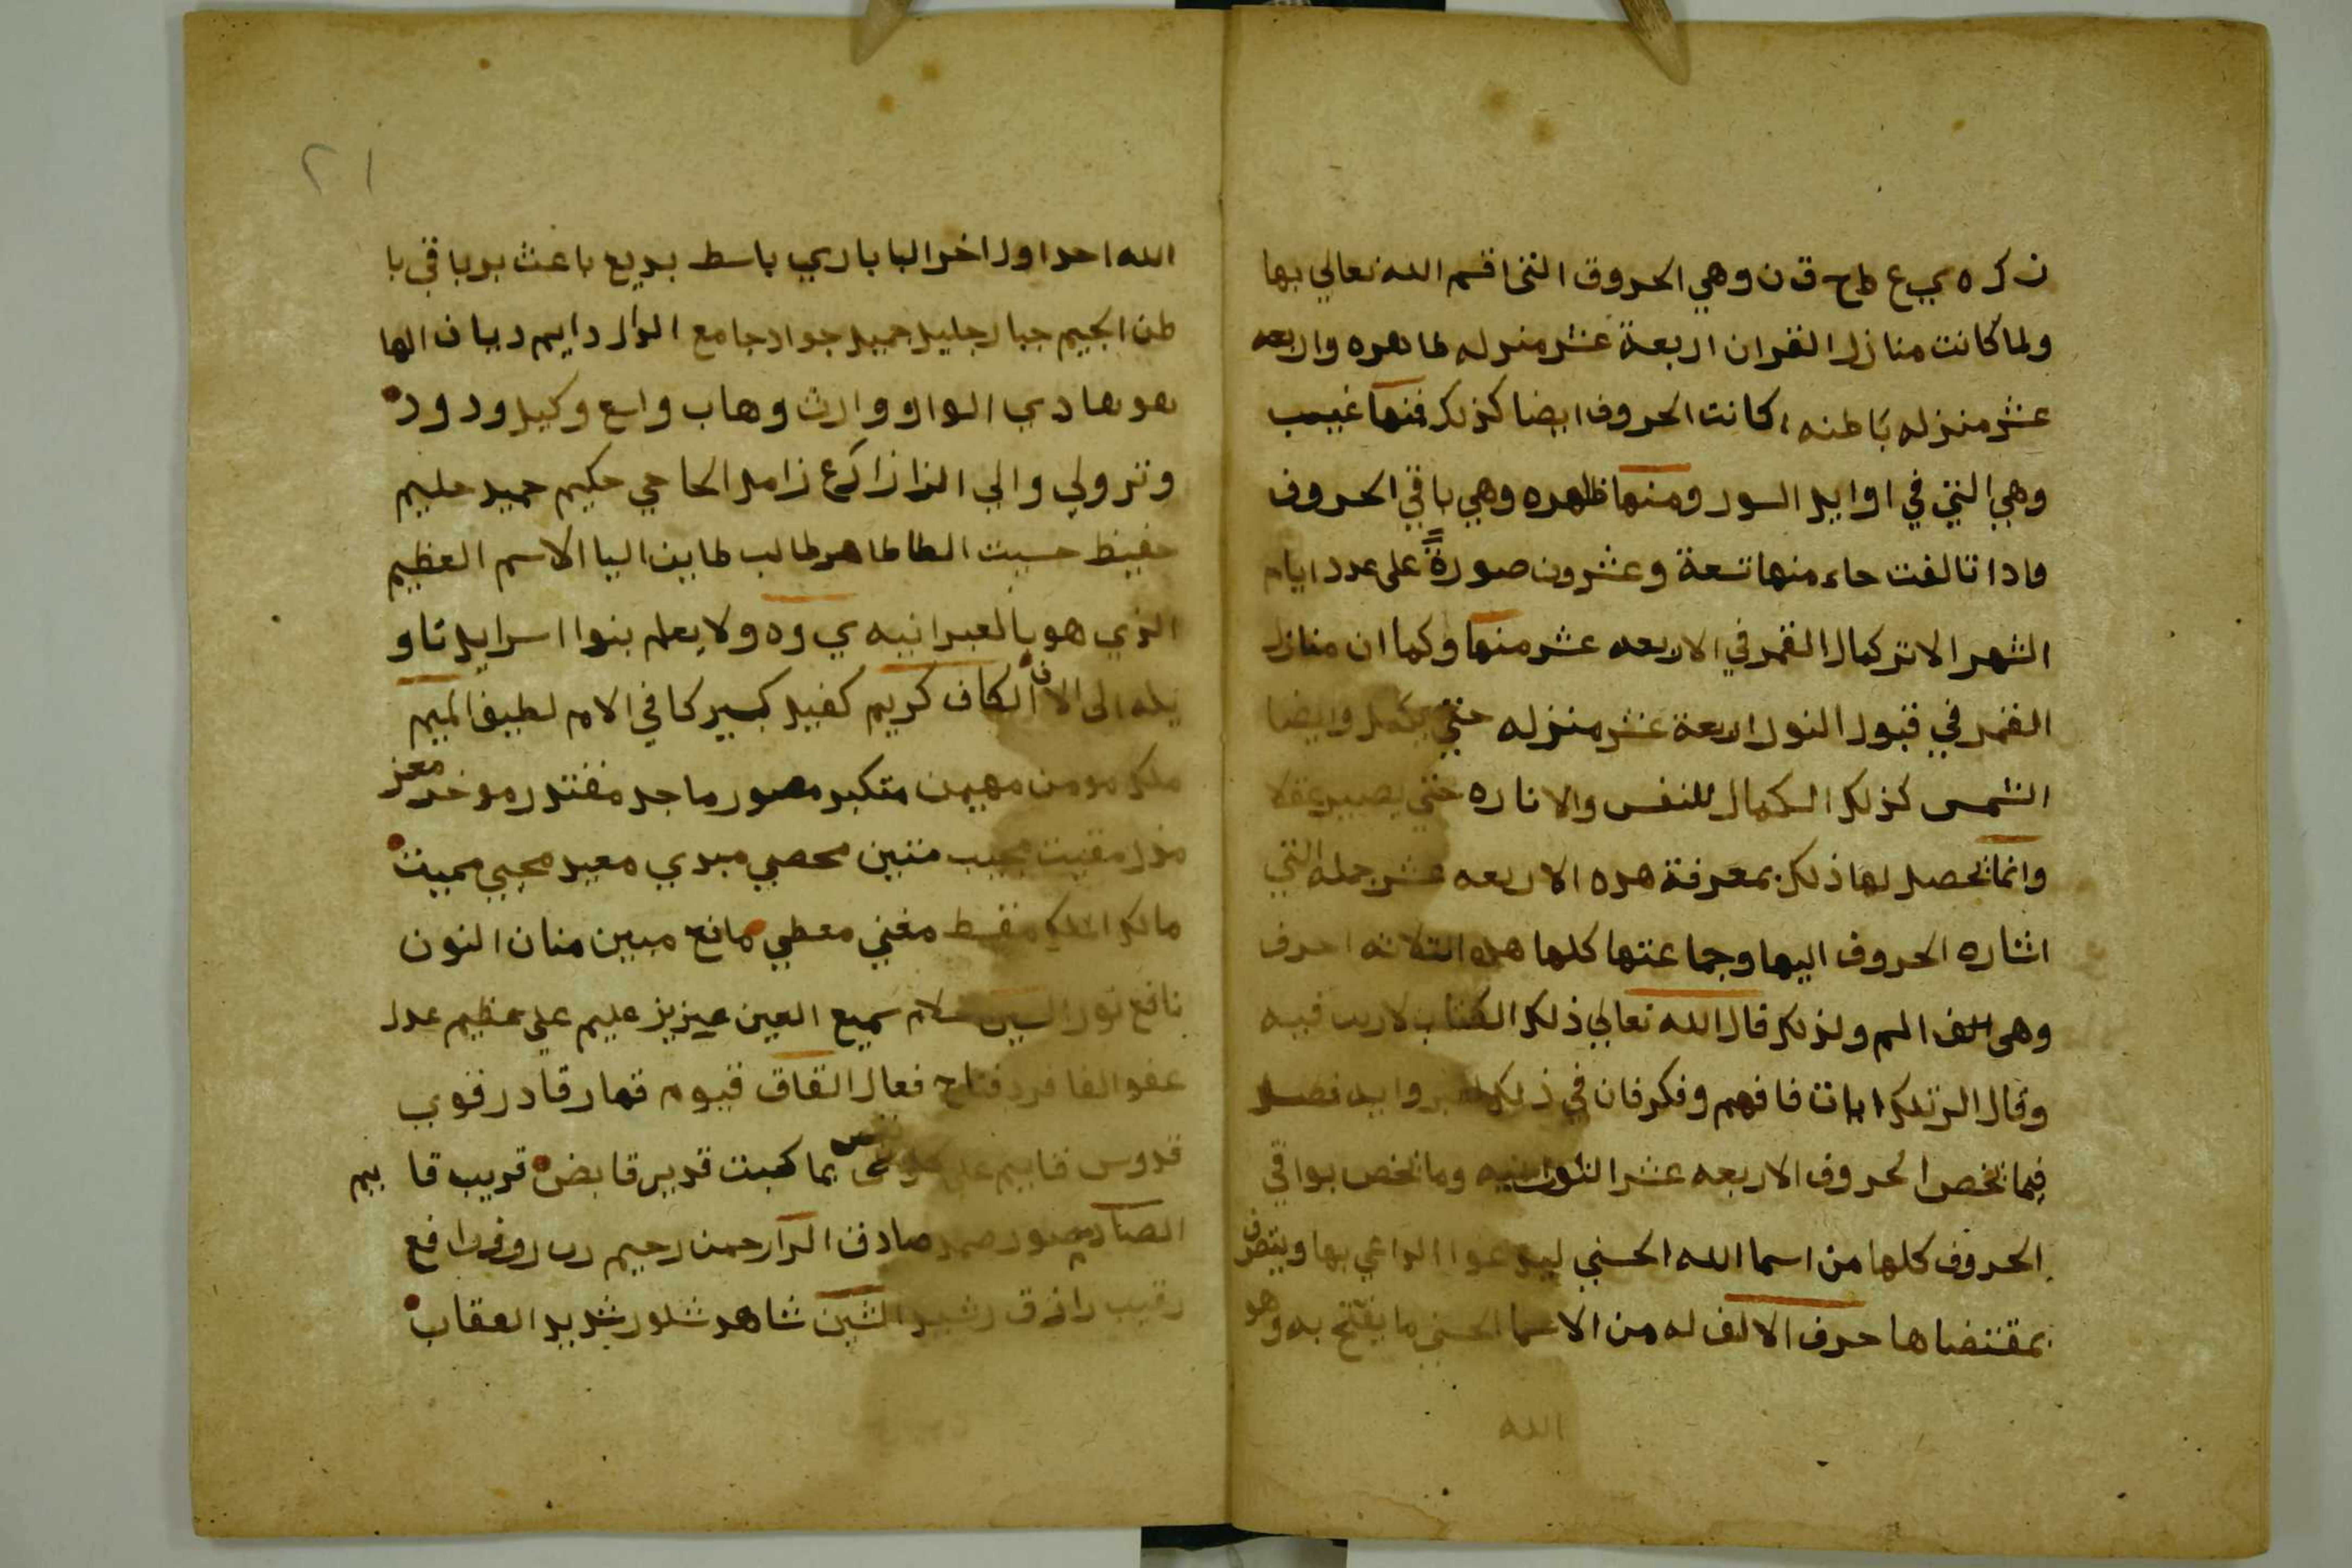 ن ك ر ه ي ع ط ح ق ن وهي الحروق التي اقسم الله تعالي بها
ولما كانت منازل القران اربعة عشر منزله طاهره واربعه
عشر منزله باطنه كانت الحروف ايضا كذلك فمنها غيب
وهي التي في اوايل السور ومنها ظاهره وهي باقي الحروف
وادا تالفت جاء منها تسعة وعشرون صورة على عدد ايام
الشهر الاتر كمال القمر في الاربعه عشر منها وكما ان منازل
القمر في قبول النور اربعة عشر منزله حتي يكمل وايضا
الشمس كذلك الكمال للنفس والاناره حتي يصير عقلا
وانما تحصل لها ذلك بمعرفة هده الاربعه عشر جمله التي
اشاره الحروف اليها وجماعتها كلها هده التلاته احرف
وهي الف الم ولذلك قال الله تعالي ذلك الكتاب لاريب فيه
وقال الر تلك ايات فافهم وفكر فان في ذلك فوايد فصل
فيما تخص الحروف الاربعه عشر النورانيه وما تخص بواقي
الحروف كلها من اسما الله الحسني ليدعوا الداعي بها ويتصرف
بمقتضاها حرف الالف له من الاسما الحسني ما يفتح به وهو
الله
٢١
الله احد اول اخر البا باري باسط بديع باعث بر باقي با
طن الجيم جبار جليل جميل جواد جامع الدال دايم ديان الها
هو هادي الواو وارث وهاب واسع وكيل ودود
وتر ولي والي الزا زارع زامل الحا حي حكيم حميد حليم
حفيظ حسيب الطا طاهر طالب طايف اليا الاسم العظيم
الذي هو بالعبرانيه ي وه ولا يعلم بنوا اسرايل تاو
يله الى الان الكاف كريم كفيل كبير كافي الام لطيف الميم
ملك مومن مهيمن متكبر مصور ماجد مقتدر موخر معز
مذل مقيت مجيب متين محصي مبدي معيد محيي مميت
مالك الملك مقسط مغني معطي مانع مبين منان النون
نافع نور السين سلام سميع العين عزيز عليم علي عظيم عدل
عفو الفا فرد فتاح فعال القاق قيوم قهار قادر قوي
قدوس قايم على كل نفس بما كسبت قدير قابض قريب قا يم
الصاد صبور صمد صادق الرا رحمن رحيم رب روف رافع
رقيب رازق رشيد الشين شاهد شكور شديد العقاب